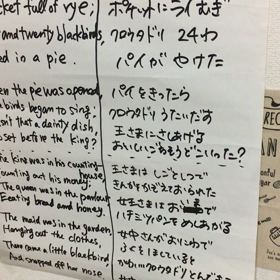 cket full of rye;
and twenty blackbirds,
ed in a pie.
en the pie was opened,
birds began to sing;
sn't that a dainty dish,
set before the king?
The king was in his counting house,
ounting out his money;
The queen was in the parlour
Eating bread and honey.
The maid was in the garden,
Hanging out the clothes,
There came a little blackbird
And snapped off her nose.
ポケットにライむぎ
クロウタドリ 24わ
パイが やけた
パイをきったら
クロウタドリ うたいだす
王さまにさしあげる
おいしいごちそう どこいった?
王さまは しごとしつで
きんかをかぞえておられた
女王さまは お で
ハチミツパンを めしあがる
女中さんが おにわで
ふくをほしていると
クロウタドリ とんできて
REC
AN